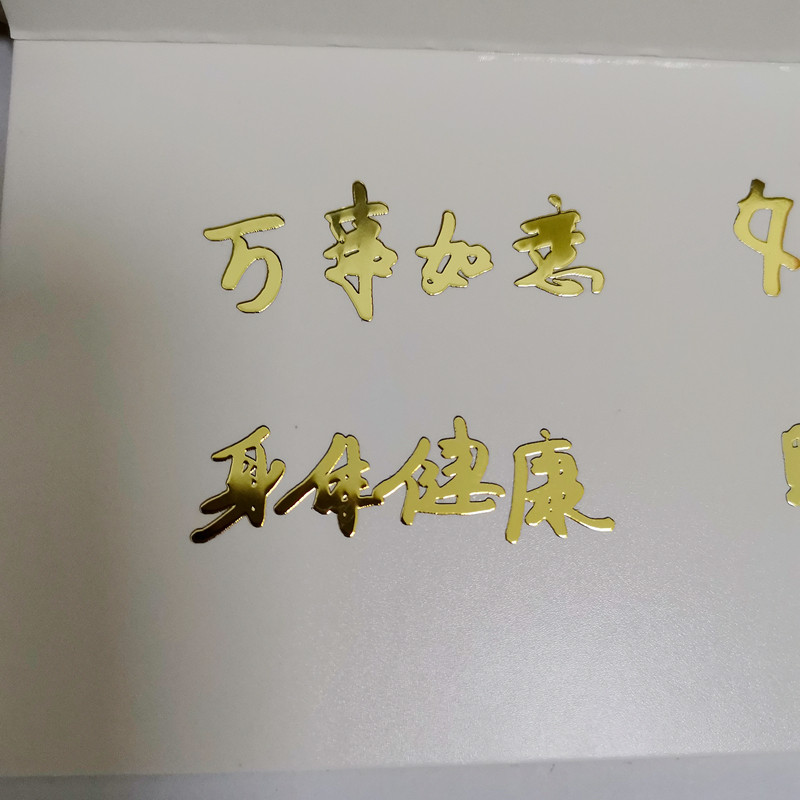 万事如意
身体健康